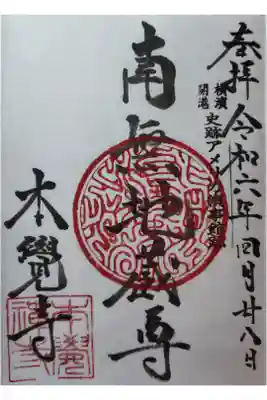 奉拝 令和六年四月廿八日
横濱
開港
史跡アメリカ領事館
南無地蔵尊
本覺寺